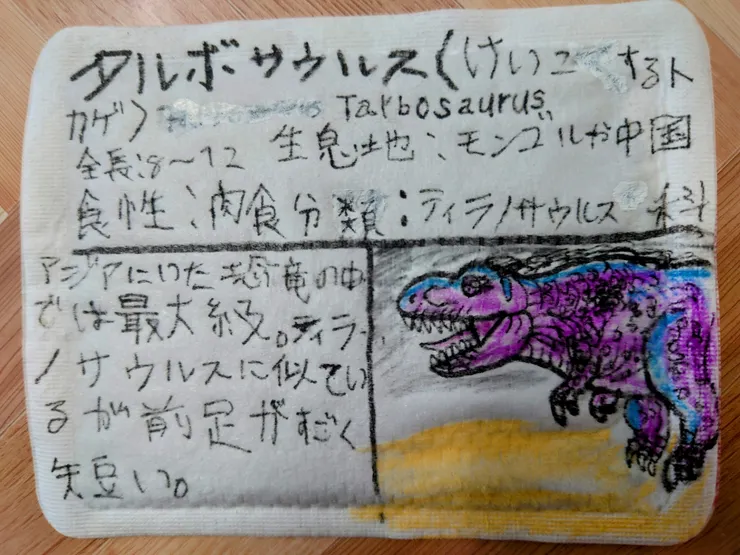 タルボサウルス(けいこくするト
カゲ)
Tarbosaurus
全長:8〜12 生息地:モンゴルや中国
食性:肉食分類:ティラノサウルス科
アジアにいた恐竜の中
では最大級。ティラ
ノサウルスに似てい
るが前足がすごく
短い。